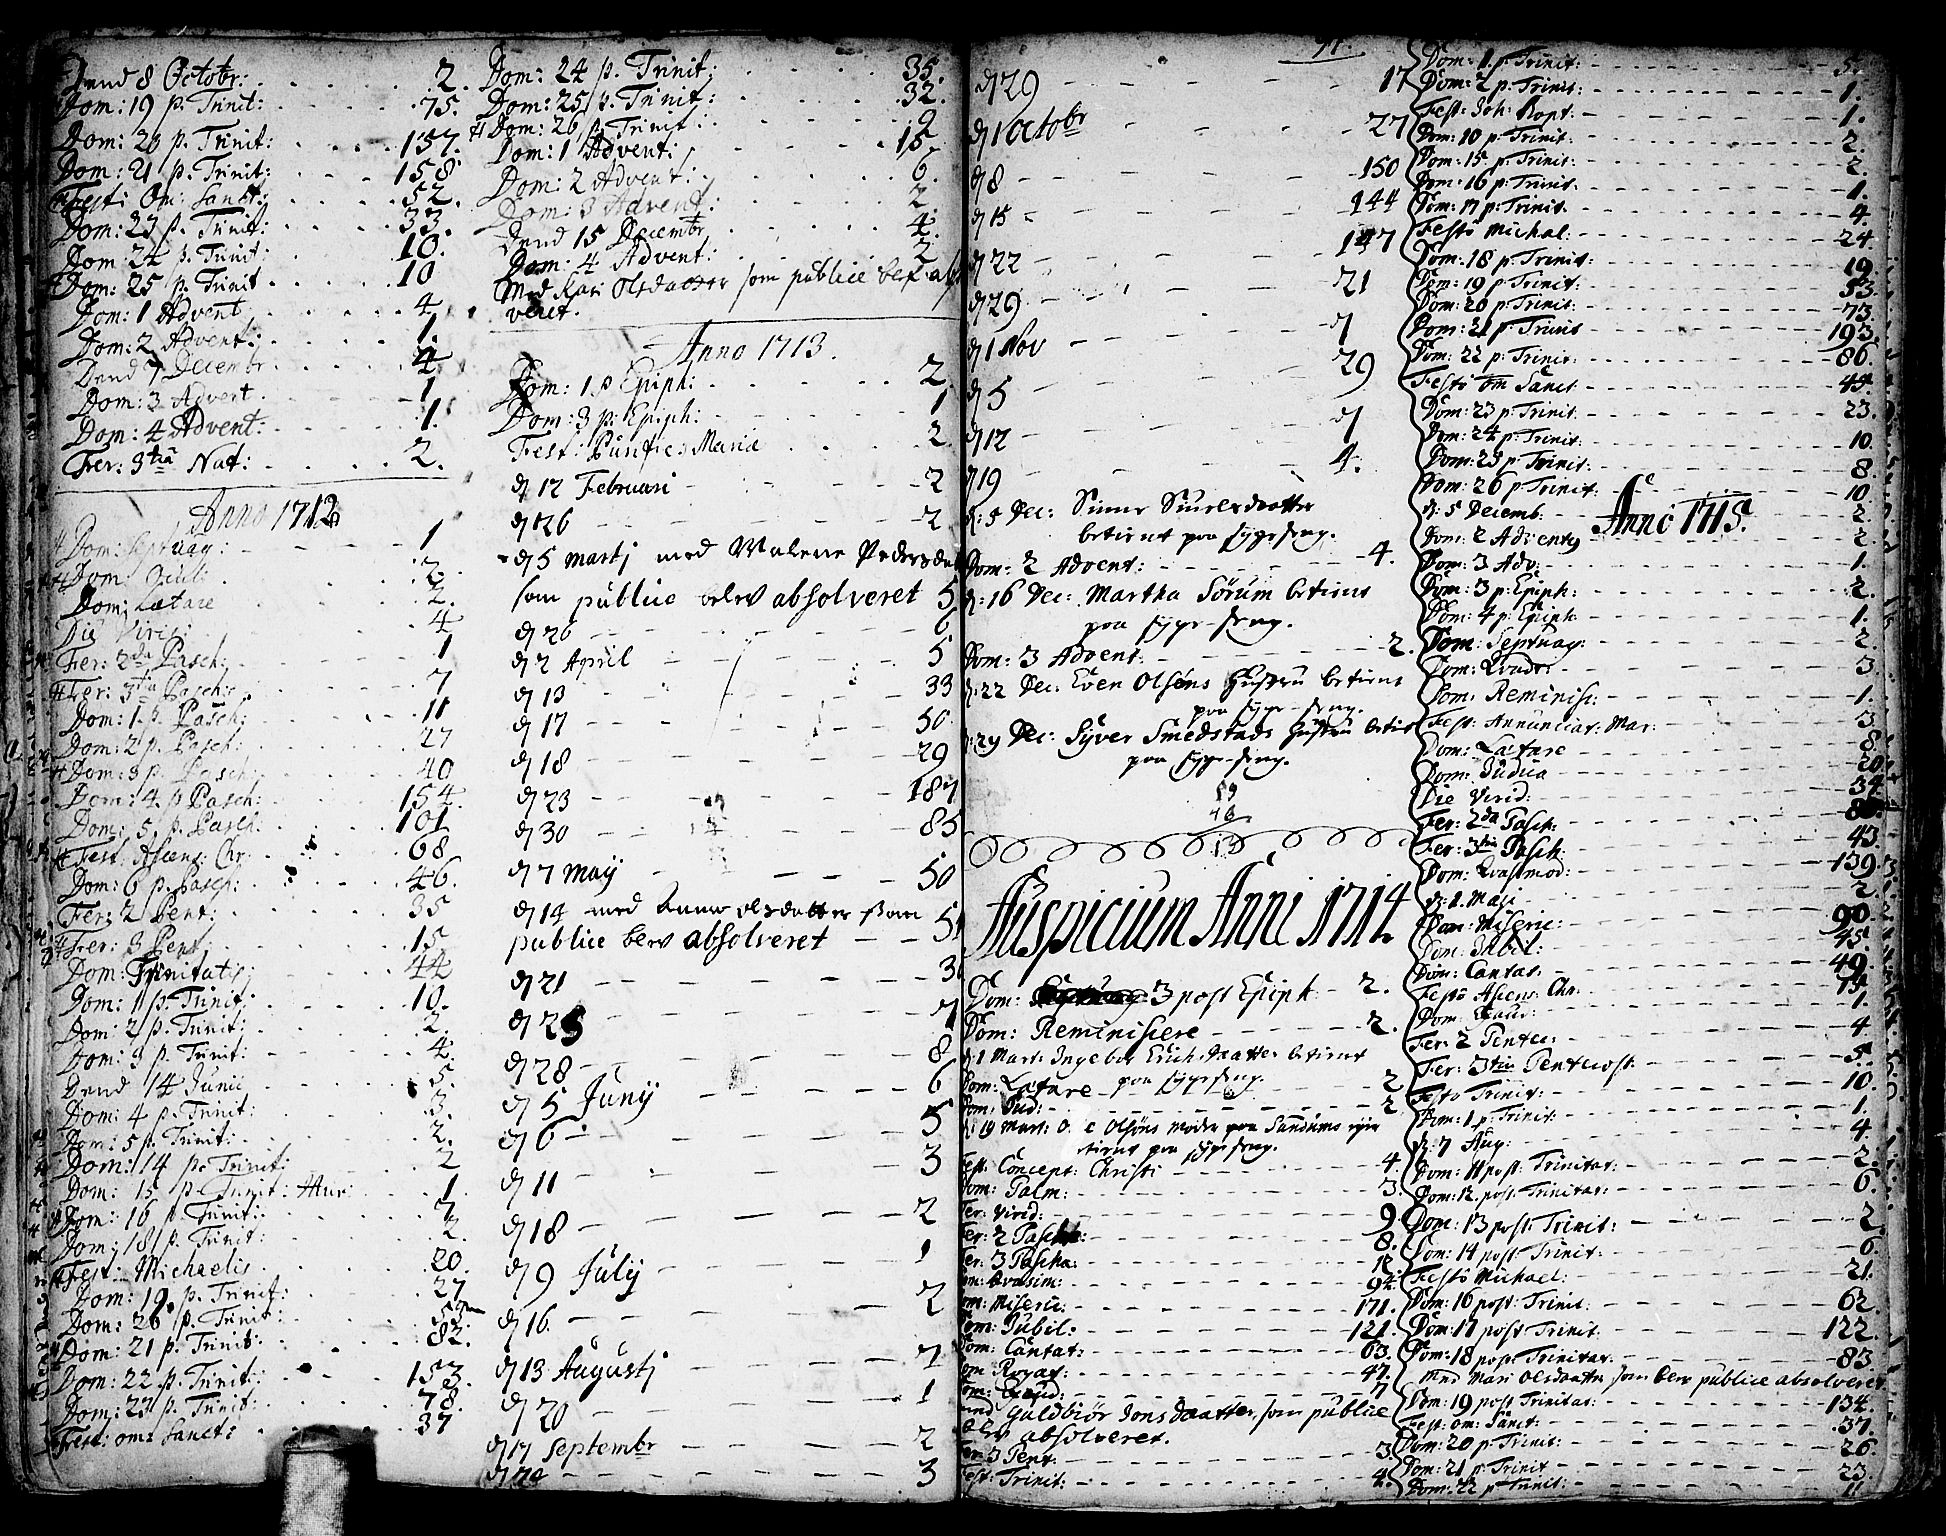 Dend 8 Octobr: 2.
Dom: 19 p. Trinit: 75.
Dom: 20 p. Trinit: 157.
Dom: 21 p. Trinit: 158
Fest: Om: Sanct: 52.
Dom: 23 p. Trinit: 33.
Dom: 24 p. Trinit: 10.
Dom: 25 p. Trinit 10
Dom: 1 Advent 4
Dom: 2 Advent: 1.
Dend 7 Decembr 4
Dom: 3 Advent 1
Dom: 4 Advent: 1.
Fer: 3tia Nat: 2.
Anno 1712
Dom: Septuag: 1
Dom: 2.
Dom: Lætare 2.
Die Virid: 4
Fer: 2da Pasch: 1
Fer: 3tia Pasch: 7
Dom: 1. p. Pasch: 11
Dom: 2 p. Pasch: 27
Dom: 3 p. Pasch: 40
Dom: 4. p Pasch: 154.
Dom: 5. p. Pasch: 101
Fest. Ascens: Chr: 68
Dom: 6 p. Pasch: 46.
Fer: 2 Pent: 35
Fer: 3 Pent: 15
Dom: Trinitatis: 44
Dom: 1 p. Trinit: 10.
Dom: 2 p. Trinit: 2.
Dom: 3 p. Trinit: 4.
Dend 14 Junii 5.
Dom: 4 p. Trinit: 3.
Dom: 5 p. Trinit: 2.
Dom: 14 p. Trinit: 2
Dom: 15 p. Trinit: 1.
Dom: 16 p. Trinit: 7
Dom: 18 p. Trinit: 2.
Fest: Michaelis 20.
Dom: 19. p. Trinit: 27
Dom: 20 p. Trinit:
Dom: 21 p. Trinit: 82.
Dom: 22 p. Trinit: 153.
Dom: 23 p. Trinit: 78.
Fest: om: Sanct: 37
Dom: 24 p. Trinit: 35.
Dom: 25 p. Trinit: 32.
Dom: 26 p. Trinit: 9
Dom: 1 Advent: 15.
Dom: 2 Advent: 6.
Dom: 3 Advent: 2.
Dend 15 Decembr 4.
Dom: 4 Advent: 2
Med Kari Olsdatter som publice blef
veret.
Anno 1713.
Dom: 1 p Epiph: 2
Dom: 3 p: Epiph: 1
Fest: Purific: Mariæ 2.
d 12 Februari 2
d 26 2
d 5 Martj med Malene Peders
som publice blev absolveret 5
d 26 6
d 2 April 5
d 13 33
d 17 50
d 18 29
d 23 187
d 30 85
d 7 Maij 50
d 14 med Anne olsdatter som
publice blev absolveret 5
d 21 3
d 25 7
d 28 8
d 5 Junij 6
d 6 5
d 11 3
d 18 2
d 9 Julij 1
d 16 2
d 13 Augustj 7
d 20 1
d 17 Septembr 2
3
d 29 17
d 1 Octobr 27
d 8 150
d 15 144
d 22 147
d 29 21
d 1 Nov 7
d 5 29
d 12 7
19 4.
5 Dec: Siuersdaatter
betient paa sygeseng.
Dom: 2 Advent: 4.
16 Dec: Martha Sörum betient
paa syge-seng.
Dom: 3 Advent: 2.
22 Dec: Even Olsöns Hustru betient
paa syge-seng.
29 Dec: Syver Smedstads Hustru
paa syge-seng.
Auspicium Anni 1714.
Dom: 3 post Epiph 2.
Dom: Reminiscere 2.
1 Mart: Ingebor Erichsdaatter betient
paa sygeseng.
Dom: Lætare 2
Dom: Jud: 2
19 Mart: Olsöns Moder paa Sundums
betient paa sygeseng.
Fest: Concept: Christi 4.
Dom: Palm: 3.
Fer: Virid: 9
Fer: 2 Pascha: 8.
Fer: 3 Pascha:
Dom: Qvasim: 94.
Dom: Miseric: 171.
Dom: Jubil: 121.
Dom: Cantat: 63.
Dom Rogat: 47.
Dom: Exaud: 7
Guldbiör Jonsdaatter, som publice
blev absolveret.
Fer: 3 Pent. 3.
Fest: Trinit: 4.
Dom: 1. p. Trinit: 5.
Dom: 2 p. Trinit: 1.
Fest: Joh: Bapt: 1.
Dom: 10 p: Trinit: 2.
Dom: 15 p: Trinit: 2.
Dom: 16 p: Trinit: 1.
Dom: 17 p: Trinit: 4.
Festo Michal: 24.
Dom: 18 p: Trinit: 19.
Dom: 19 p: Trinit: 53.
Dom: 20 p: Trinit: 73.
Dom: 21 p: Trinit 193.
Dom: 22 p: Trinit: 86.
Festo Om Sanct
Dom: 23 p: Trinit: 23.
Dom: 24 p: Trinit: 10.
Dom: 25 p: Trinit: 8.
Dom: 26 p: Trinit: 10
5 Decemb. 2.
Anno 1715.
Dom: 2 Adventg 2.
Dom: 3 Adv: 1.
Dom: 3 p: Epiph: 2.
Dom: 4 p: Epiph: 1.
Dom: Septuag: 2.
Dom: 3.
Dom: Reminisc: 1.
Fest: Annunciat: Mar: 3
Dom: Lætare 8
Dom: Judica 20
Die Virid: 34
Fer: 2da Pasch:
Fer: 3tia Pasch: 43.
Dom: Qvasimod: 139
1. Maji 2
Dom: Miseric: 90.
Dom: Jubil: 45.
Dom: Cantat. 49.
Festo Ascens: Chr.
Dom: Exaud: 1.
Fer: 2 Pentec: 4
Fer: 3tia Pentecost: 5.
Festo Trinit: 10.
Dom: 1 p: Trinit: 1.
7 Aug: 4.
Dom: 11 post: Trinitat: 2.
Dom: 12. post: Trinitat: 6.
Dom: 13 post: Trinit: 2
Dom: 14 post: Trinit: 6.
Festo Michael: 21.
Dom: 16 post: Trinit: 62.
Dom: 17 post Trinit: 122.
Dom: 18 post Trinitat: 83
Med Mari Olsdaatter som blev publice absolveret
Dom: 19 post: Trinitat: 134.
Fest: om: Sanct: 37.
Dom: 20 p: Trinit: 26.
Dom: 21 p: Trinit 23.
Dom: 22 p: Trinit: 11